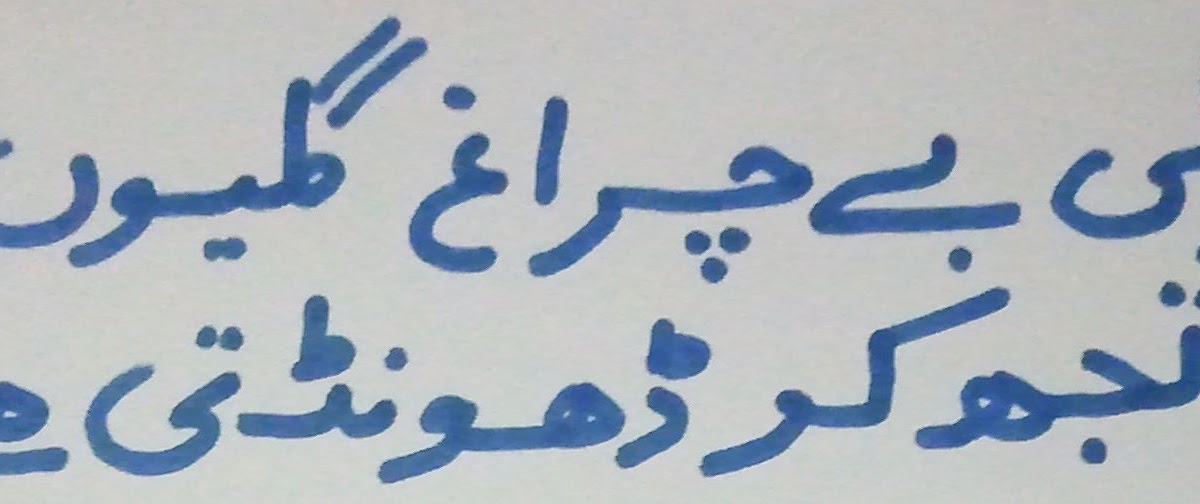 بے چراغ گلیوں
تجھ کو ڈھونڈتی ہے